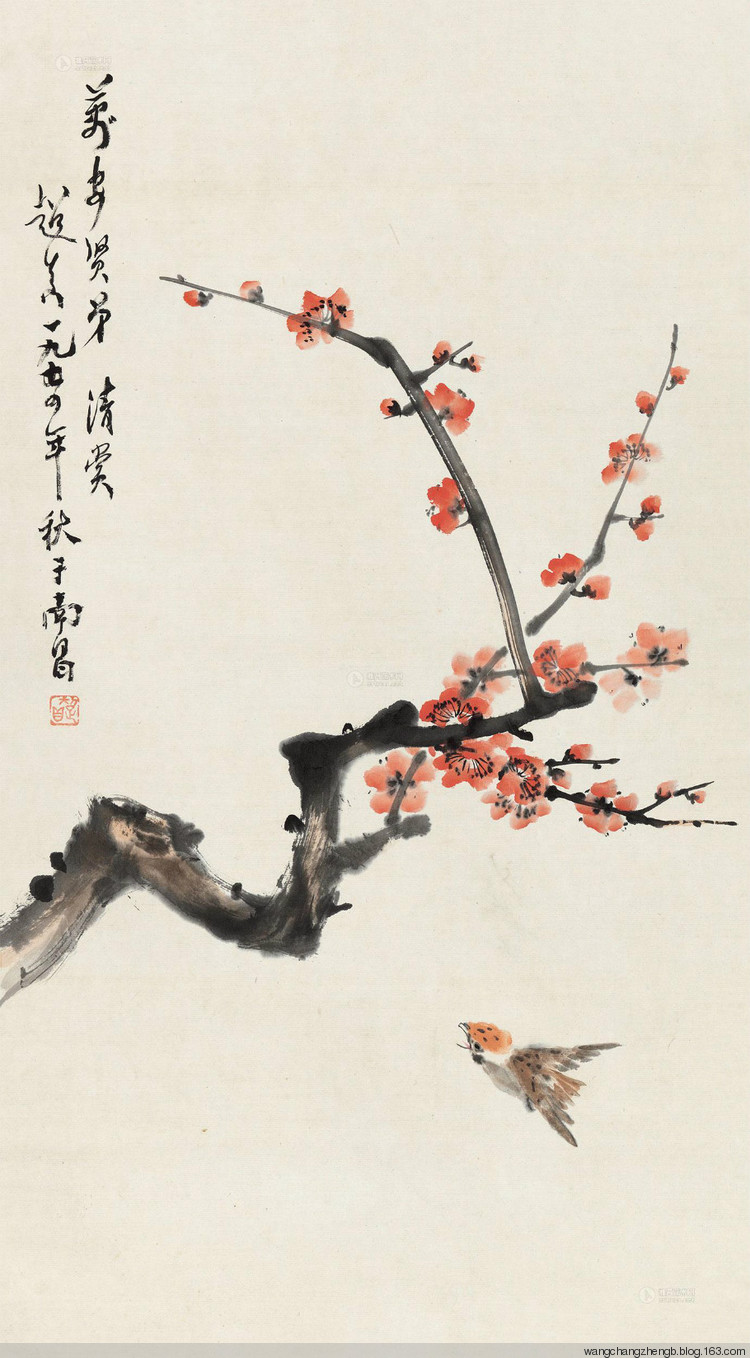 安贤弟 清赏
超一九七四年秋于南昌
wangchangzhengb.blog.163.com